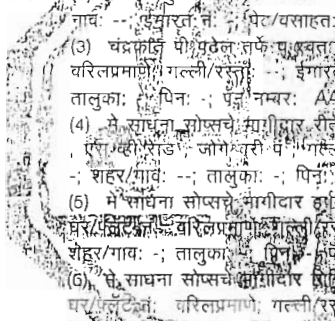 नावः --; ईमारत नं: -; पेट/वसाहत
(3) चंद्रकांत पी पटेल तर्फे
वरिलप्रमाणे; गल्ली/रस्ता: --; ईमार
तालुका: -; पिन: -; पॅन नम्बर: AA
(4) मे साधना सोप्सचे भागीदार
एस व्ही रोड जोगेश्वरी प
-; शहर/गाव: --; तालुका: -; पिन:
(5) मे साधना सोप्सचे भागीदार
घर/फ्लॅट नं: वरिलप्रमाणे; गल्ली/रस
शहर/गाव: -; तालुका: -; पिन: -;
(6) मे साधना सोप्सचे भागीदार
घर/फ्लॅट नं: वरिलप्रमाणे; गल्ली/रस